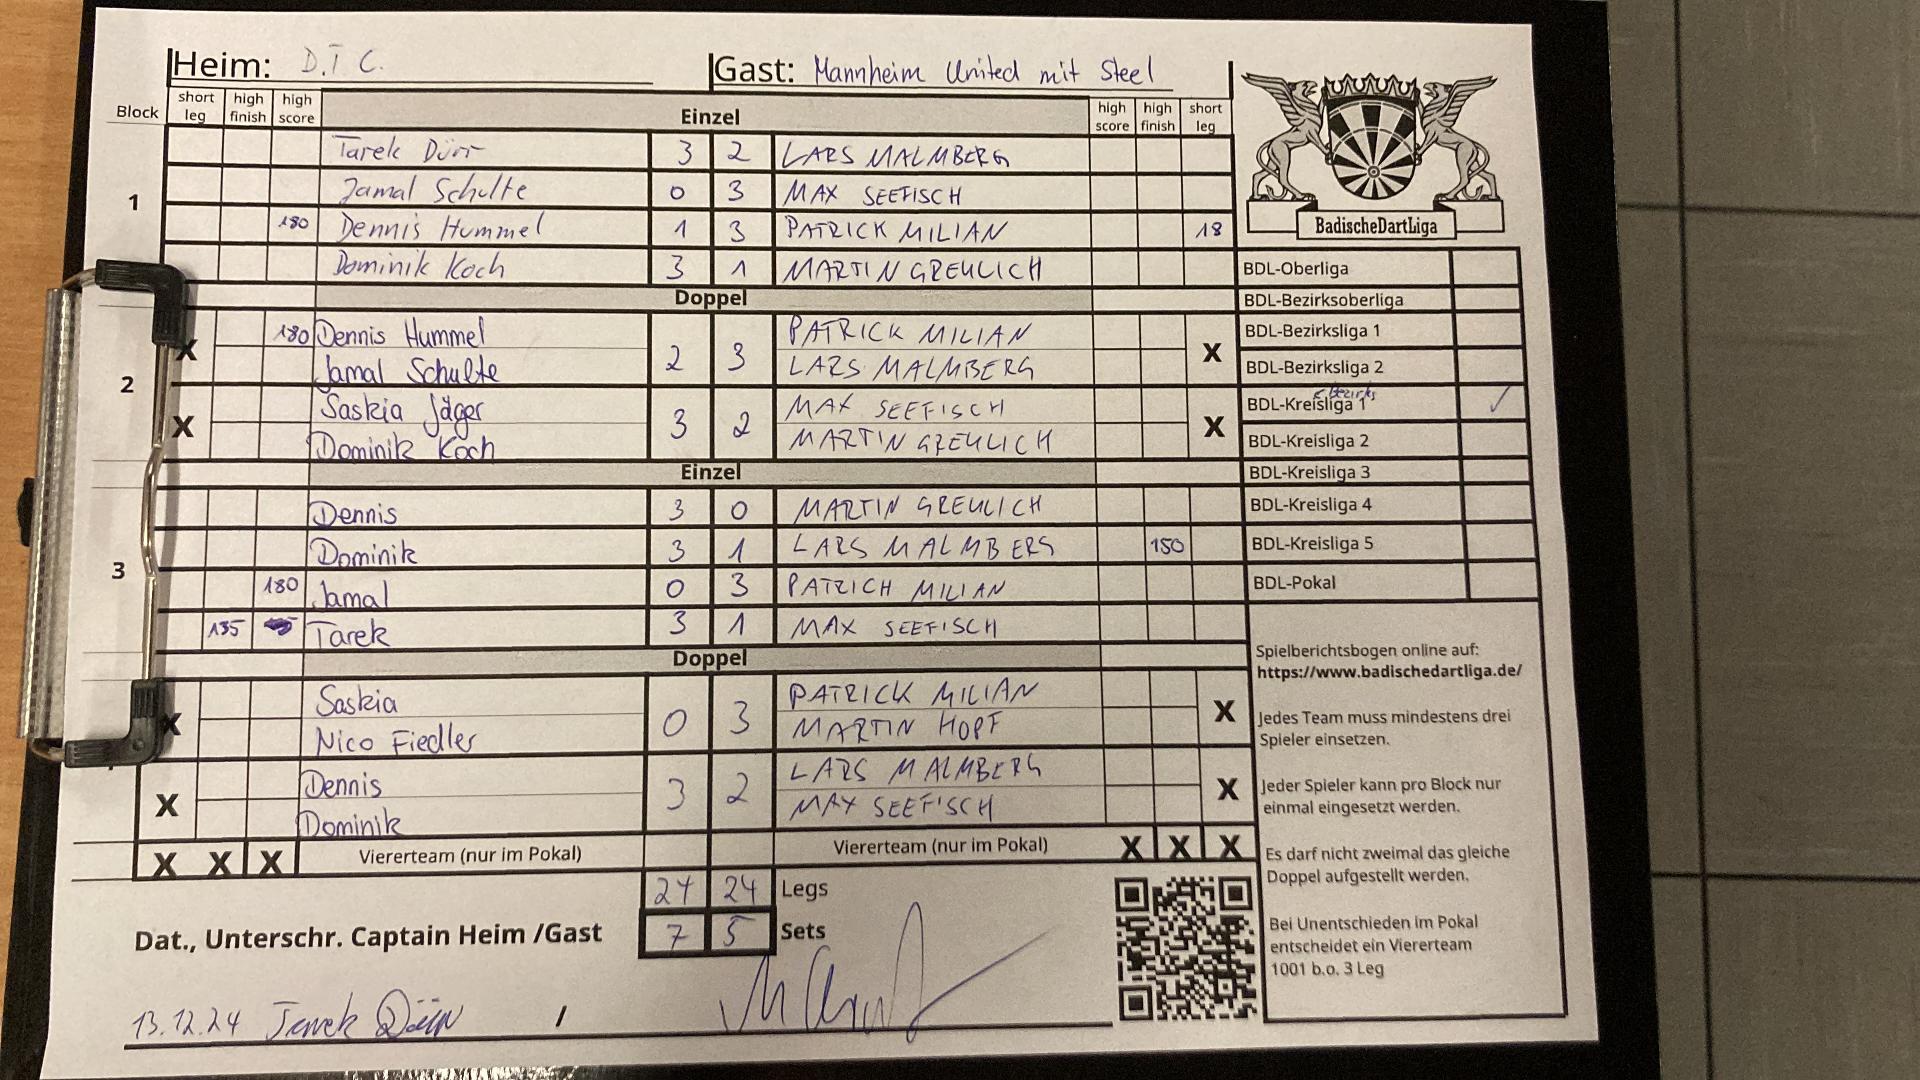 Heim: D.T C. Gast: Mannheim United mit Steel
Block short leg high finish high score Einzel high score high finish short leg
1
Tarek Dürr 3 2 LARS MALMBERG
Jamal Schulte 0 3 MAX SEEFISCH
180 Dennis Hummel 1 3 PATRICK MILIAN 18
Dominik Koch 3 1 MARTIN GREULICH
Doppel
2
X 180 Dennis Hummel 2 3 PATRICK MILIAN X
Jamal Schulte LARS MALMBERG
X Saskia Jäger 3 2 MAX SEEFISCH X
Dominik Koch MARTIN GREULICH
Einzel
3
Dennis 3 0 MARTIN GREULICH
Dominik 3 1 LARS MALMBERG 150
180 Jamal 0 3 PATRICH MILIAN
135 Tarek 3 1 MAX SEEFISCH
Doppel
X Saskia 0 3 PATRICK MILIAN X
Nico Fiedler MARTIN HOPF
X Dennis 3 2 LARS MALMBERG X
Dominik MAX SEEFISCH
X X X Viererteam (nur im Pokal) Viererteam (nur im Pokal) X X X
24 24 Legs
7 5 Sets
Dat., Unterschr. Captain Heim /Gast
13.12.24 Tarek Dürr /
BadischeDartLiga
BDL-Oberliga
BDL-Bezirksoberliga
BDL-Bezirksliga 1
BDL-Bezirksliga 2
Bezirks
BDL-Kreisliga 1 ✓
BDL-Kreisliga 2
BDL-Kreisliga 3
BDL-Kreisliga 4
BDL-Kreisliga 5
BDL-Pokal
Spielberichtsbogen online auf:
https://www.badischedartliga.de/
Jedes Team muss mindestens drei
Spieler einsetzen.
Jeder Spieler kann pro Block nur
einmal eingesetzt werden.
Es darf nicht zweimal das gleiche
Doppel aufgestellt werden.
Bei Unentschieden im Pokal
entscheidet ein Viererteam
1001 b.o. 3 Leg